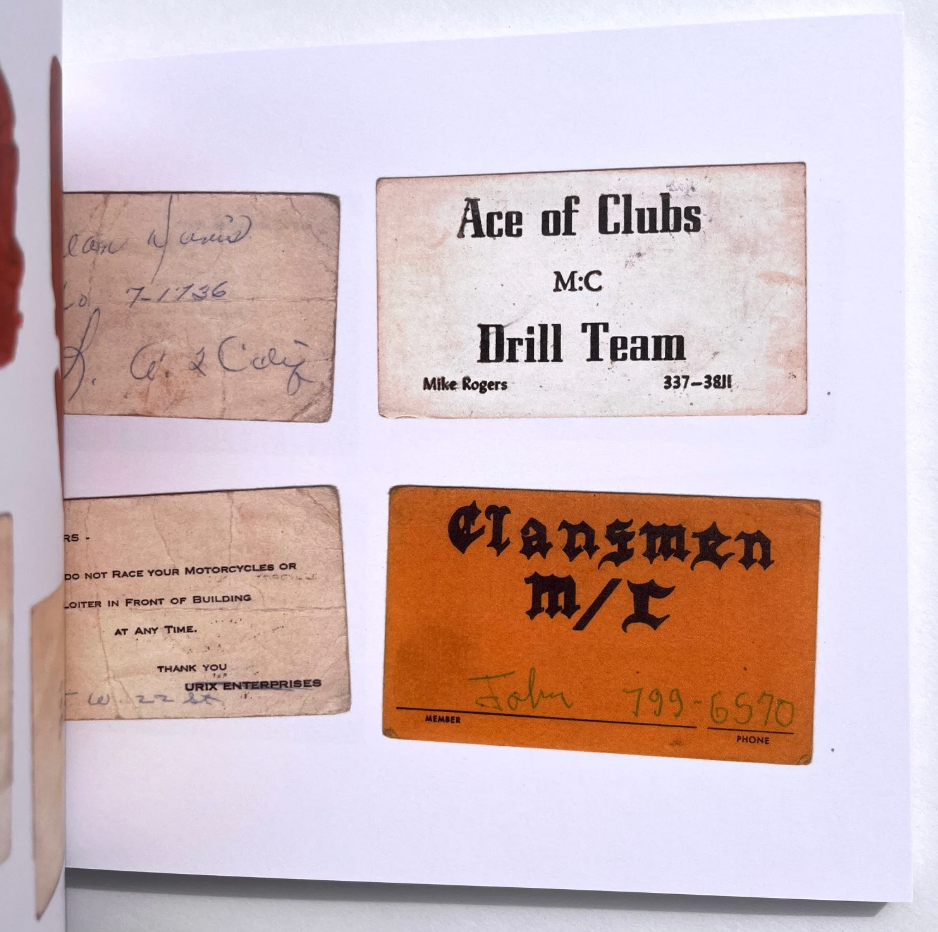 7-1736
Ace of Clubs
M:C
Drill Team
Mike Rogers 337-3811
RS -
DO NOT RACE YOUR MOTORCYCLES OR
LOITER IN FRONT OF BUILDING
AT ANY TIME.
THANK YOU
URIX ENTERPRISES
W. 22 St.
Clansmen
M/C
John 799-6570
MEMBER PHONE